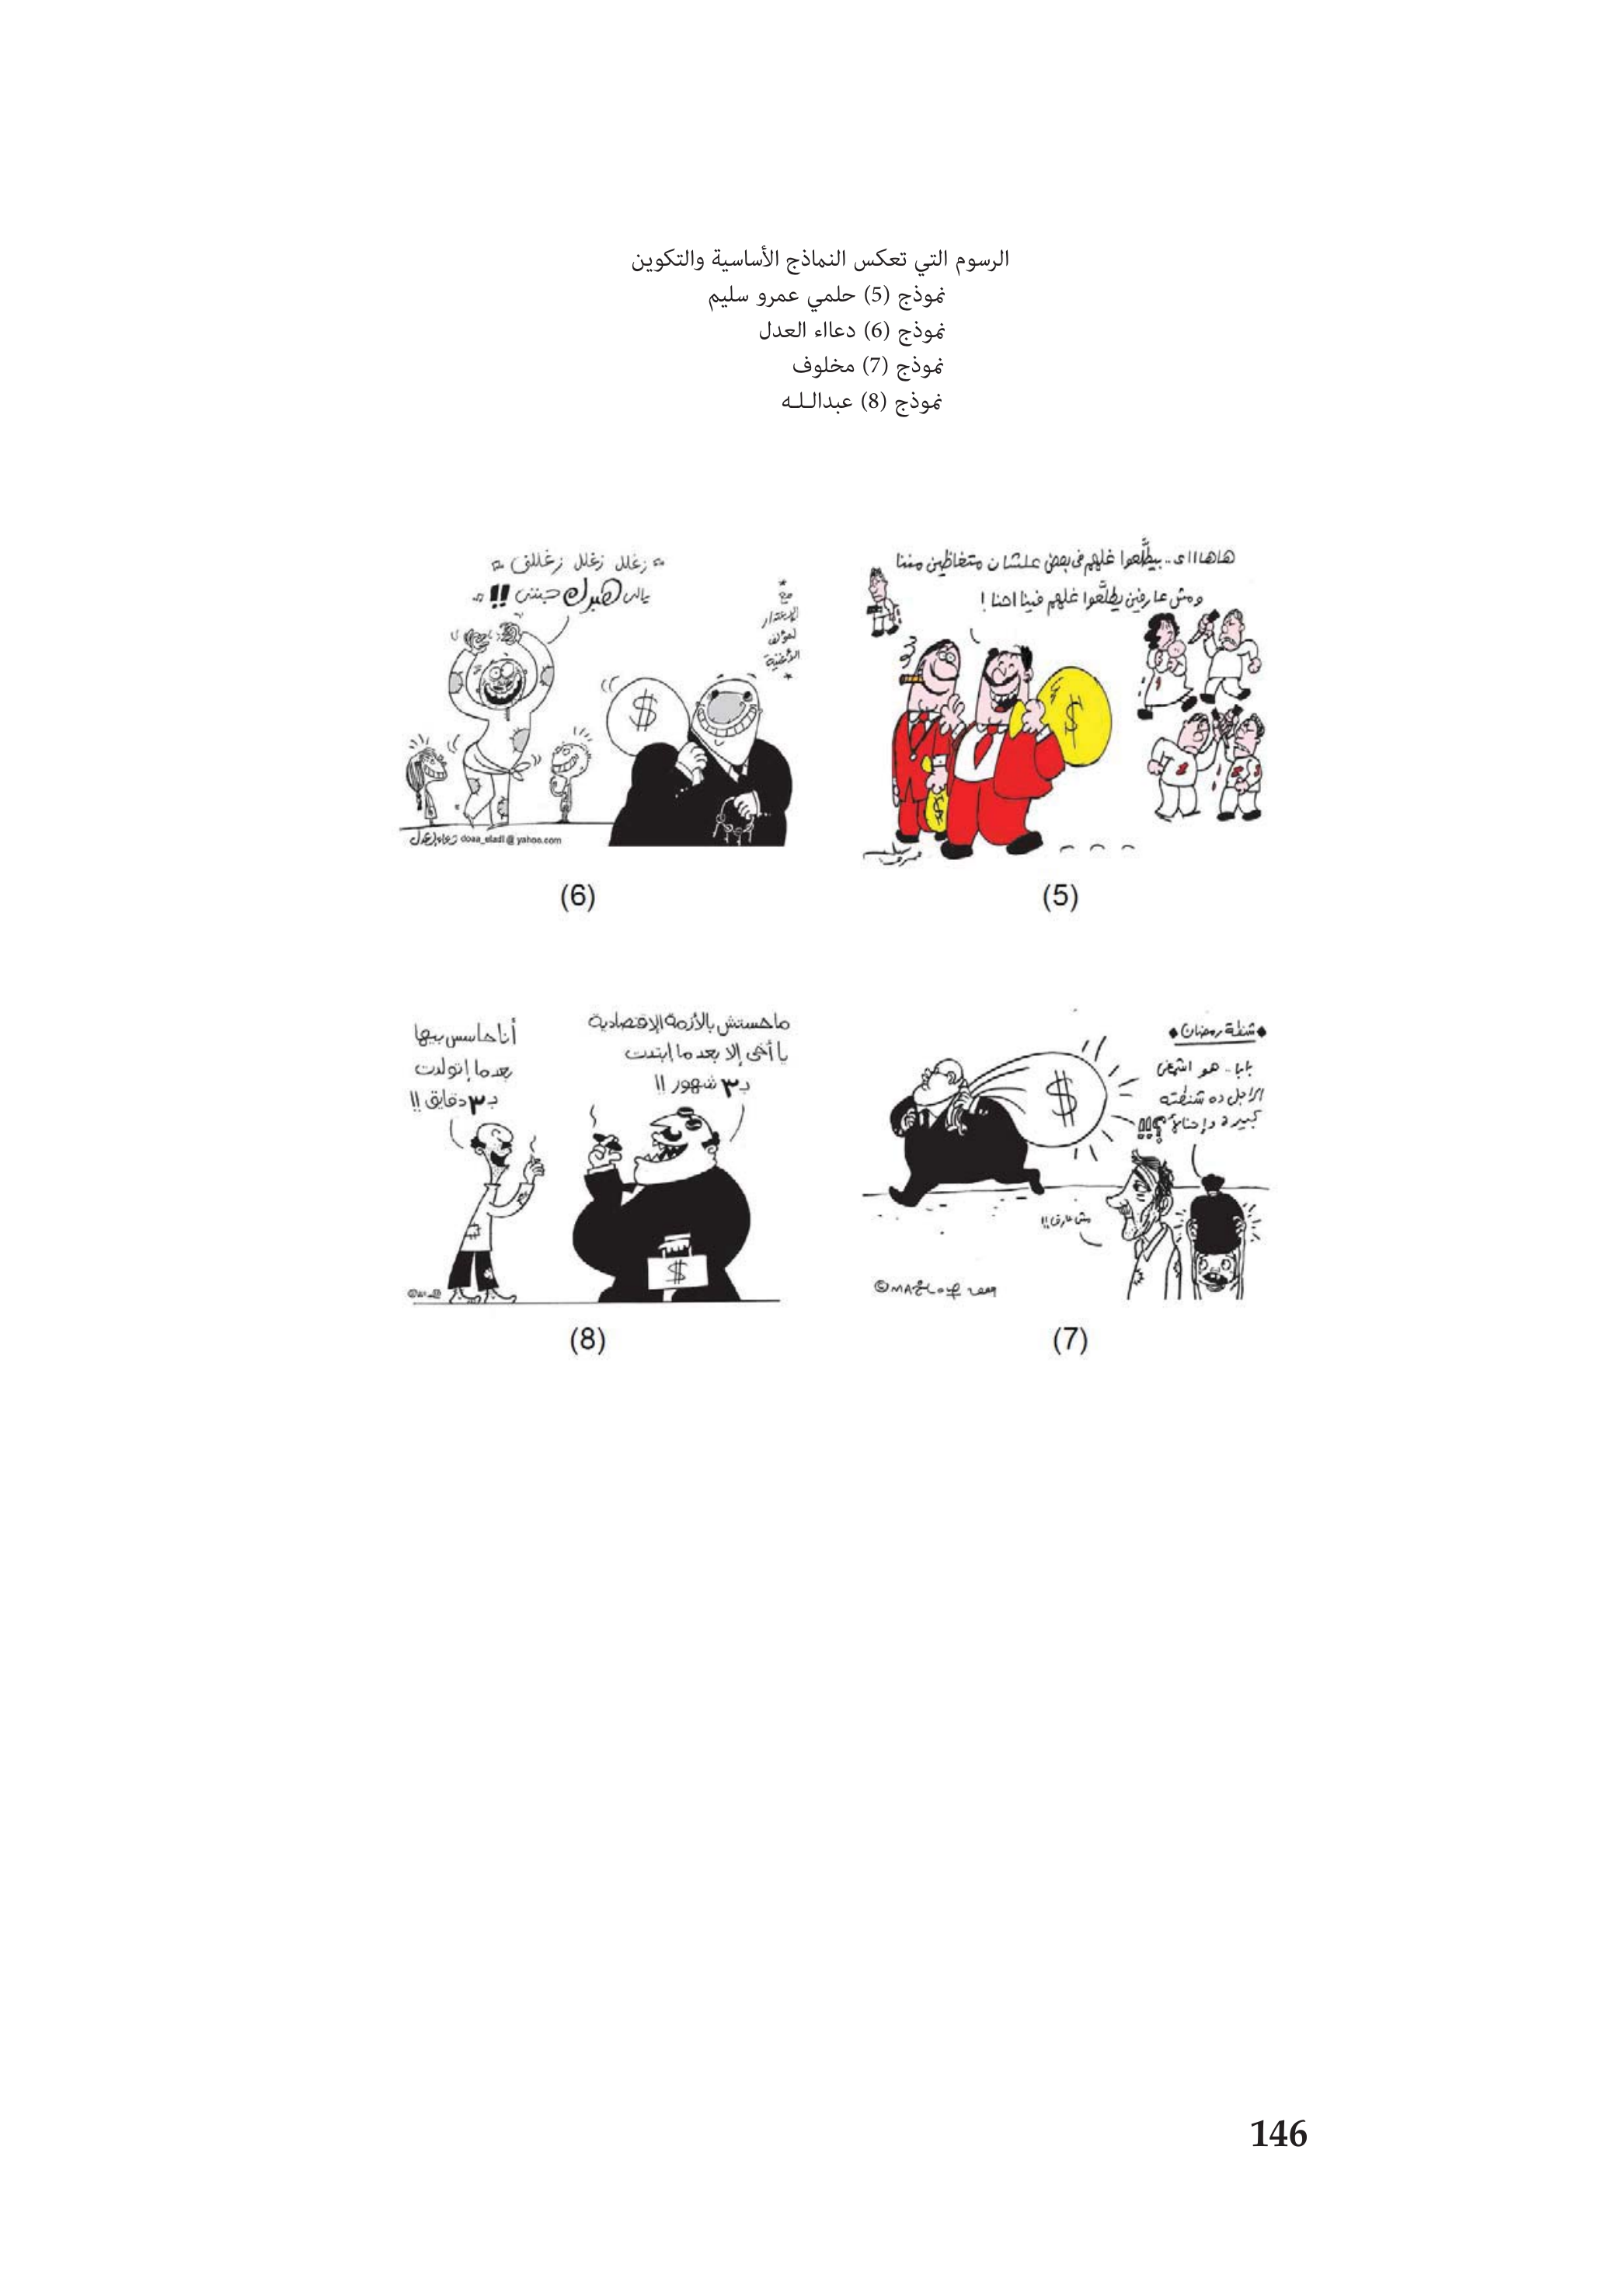 الرسوم التي تعكس النماذج الأساسية والتكوين
نموذج (5) حلمي عمرو سليم
نموذج (6) دعااء العدل
نموذج (7) مخلوف
نموذج (8) عبدالـلـه
هاهااااى.. بيطلَّعوا غلهم فى بعض علشان متغاظين مننا
ومش عارفين يطلَّعوا غلهم فينا احنا !
(5)
زغلل زغلل زغللى
ياللى هبرك جنن !!
* مع
الإعتذار
لمؤلف
الأغنية
*
دعاء العدل doaa_eladl@yahoo.com
(6)
شنطة رمضان
بابا.. هو اشمعنى
الراجل ده شنطته
كبيرة وإحنا لأ ؟!!
مش عارف!!
©MAخLOUF 2009
$
(7)
ماحستش بالأزمة الإقتصادية
يا أخى إلا بعد ما ابتدت
بـ٣ شهور !!
أنا حاسس بيها
بعد ما إتولدت
بـ٣ دقايق !!
$
(8)
146